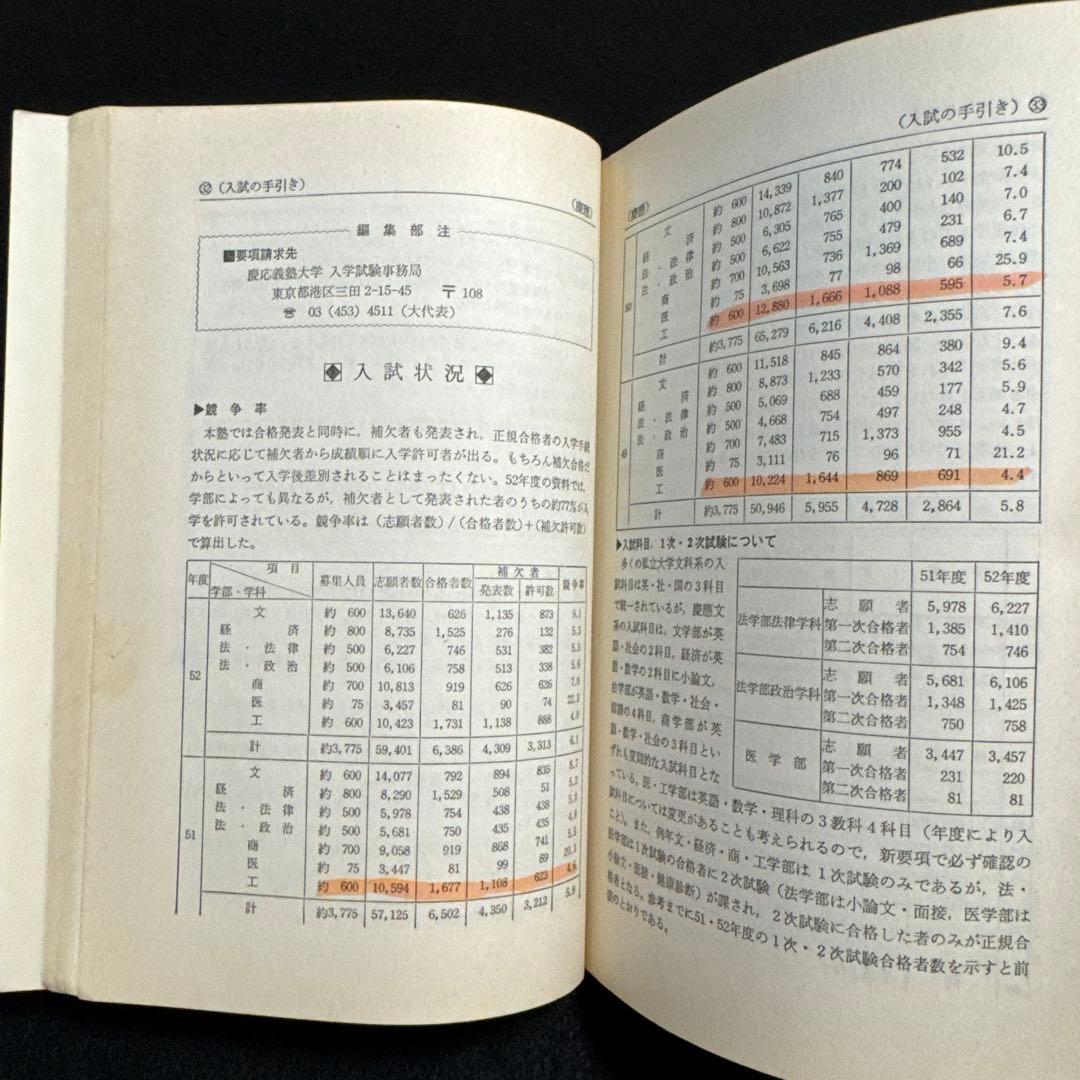 ㉜(入試の手引き)
(慶應)
編集部注
■要項請求先
慶応義塾大学 入学試験事務局
東京都港区三田 2-15-45 〒 108
☎ 03 (453) 4511 (大代表)
入試状況
▶競争率
本塾では合格発表と同時に，補欠者も発表され，正規合格者の入学手続
状況に応じて補欠者から成績順に入学許可者が出る。もちろん補欠合格だ
からといって入学後差別されることはまったくない。52年度の資料では，
学部によっても異なるが，補欠者として発表された者のうちの約77%が入
学を許可されている。競争率は（志願者数）/（合格者数）+（補欠許可数）
で算出した。
年度 項目 学部・学科 募集人員 志願者数 合格者数 補欠者 発表数 許可数 競争率
52
文 約 600 13,640 626 1,135 873 9.1
経済 約 800 8,735 1,525 276 132 5.3
法・法律 約 500 6,227 746 531 382 5.5
法・政治 約 500 6,106 758 513 338 5.6
商 約 700 10,813 919 626 626 7.0
医 約 75 3,457 81 90 74 22.3
工 約 600 10,423 1,731 1,138 888 4.0
計 約3,775 59,401 6,386 4,309 3,313 6.1
51
文 約 600 14,077 792 894 835 8.7
経済 約 800 8,290 1,529 508 51 5.2
法・法律 約 500 5,978 754 438 438 5.0
法・政治 約 500 5,681 750 435 435 4.8
商 約 700 9,058 919 868 741 5.5
医 約 75 3,447 81 99 89 20.3
工 約 600 10,594 1,677 1,108 623 4.6
計 約3,775 57,125 6,502 4,350 3,212 5.9
(入試の手引き)㉝
(慶應)
50
文 約 600 14,339 840 774 532 10.5
経済 約 800 10,872 1,377 200 102 7.4
法・法律 約 500 6,305 765 400 140 7.0
法・政治 約 500 6,622 755 479 231 6.7
商 約 700 10,563 736 1,369 689 7.4
医 約 75 3,698 77 98 66 25.9
工 約 600 12,880 1,666 1,088 595 5.7
計 約3,775 65,279 6,216 4,408 2,355 7.6
49
文 約 600 11,518 845 864 380 9.4
経済 約 800 8,873 1,233 570 342 5.6
法・法律 約 500 5,069 688 459 177 5.9
法・政治 約 500 4,668 754 497 248 4.7
商 約 700 7,483 715 1,373 955 4.5
医 約 75 3,111 76 96 71 21.2
工 約 600 10,224 1,644 869 691 4.4
計 約3,775 50,946 5,955 4,728 2,864 5.8
▶入試科目，1次・2次試験について
多くの私立大学文科系の入
試科目は英・社・国の3科目
で統一されているが，慶應文
系の入試科目は，文学部が英
語・社会の2科目，経済が英
語・数学の2科目に小論文，
法学部が英語・数学・社会・
国語の4科目，商学部が英
語・数学・社会の3科目とい
ずれも変則的な入試科目とな
っている。医・工学部は英語・数学・理科の3教科4科目（年度により入
試科目については変更があることも考えられるので，新要項で必ず確認の
こと）。また，例年文・経済・商・工学部は1次試験のみであるが，法・
医学部は1次試験の合格者に2次試験（法学部は小論文・面接，医学部は
小論文・面接・健康診断）が課され，2次試験に合格した者のみが正規合
格者となる。参考までに51・52年度の1次・2次試験合格者数を示すと前
表のとおりである。
51年度 52年度
法学部法律学科 志願者 5,978 6,227
第一次合格者 1,385 1,410
第二次合格者 754 746
法学部政治学科 志願者 5,681 6,106
第一次合格者 1,348 1,425
第二次合格者 750 758
医学部 志願者 3,447 3,457
第一次合格者 231 220
第二次合格者 81 81